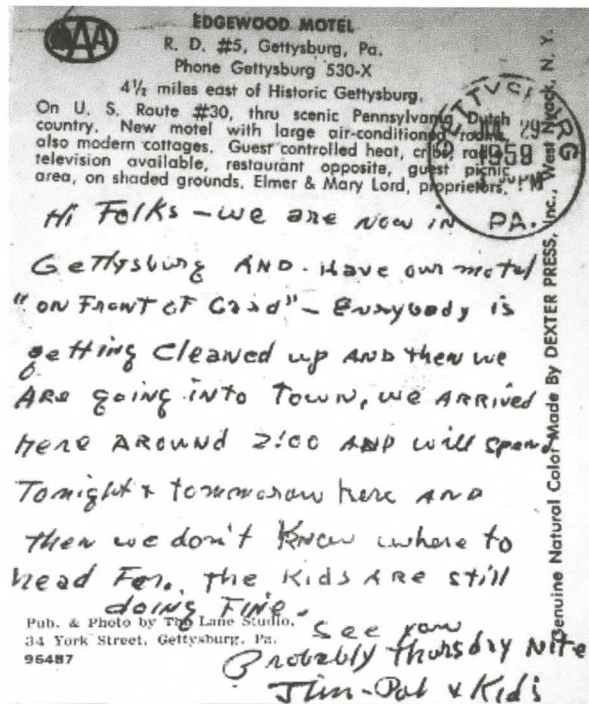 AAA
EDGEWOOD MOTEL
R. D. #5, Gettysburg, Pa.
Phone Gettysburg 530-X
4½ miles east of Historic Gettysburg.
On U. S. Route #30, thru scenic Pennsylvania Dutch
country. New motel with large air-conditioned rooms,
also modern cottages. Guest controlled heat, cribs, radio,
television available, restaurant opposite, guest picnic
area, on shaded grounds. Elmer & Mary Lord, proprietors.
GETTYSBURG
29
1959
PM
PA.
Hi Folks - we are now in
Gettysburg AND Have our motel
"on Front of Card" - Everybody is
getting Cleaned up AND then we
ARE going into Town, we ARRIVED
here AROUND 2:00 AND will spend
Tonight & tommorow here AND
then we don't Know where to
head For. The Kids ARE still
doing FINE.
See you
Probably thursday Nite
Jim-Pat & Kids
Pub. & Photo by The Lane Studio,
34 York Street, Gettysburg, Pa.
96487
Genuine Natural Color Made By DEXTER PRESS, Inc., West Nyack, N. Y.